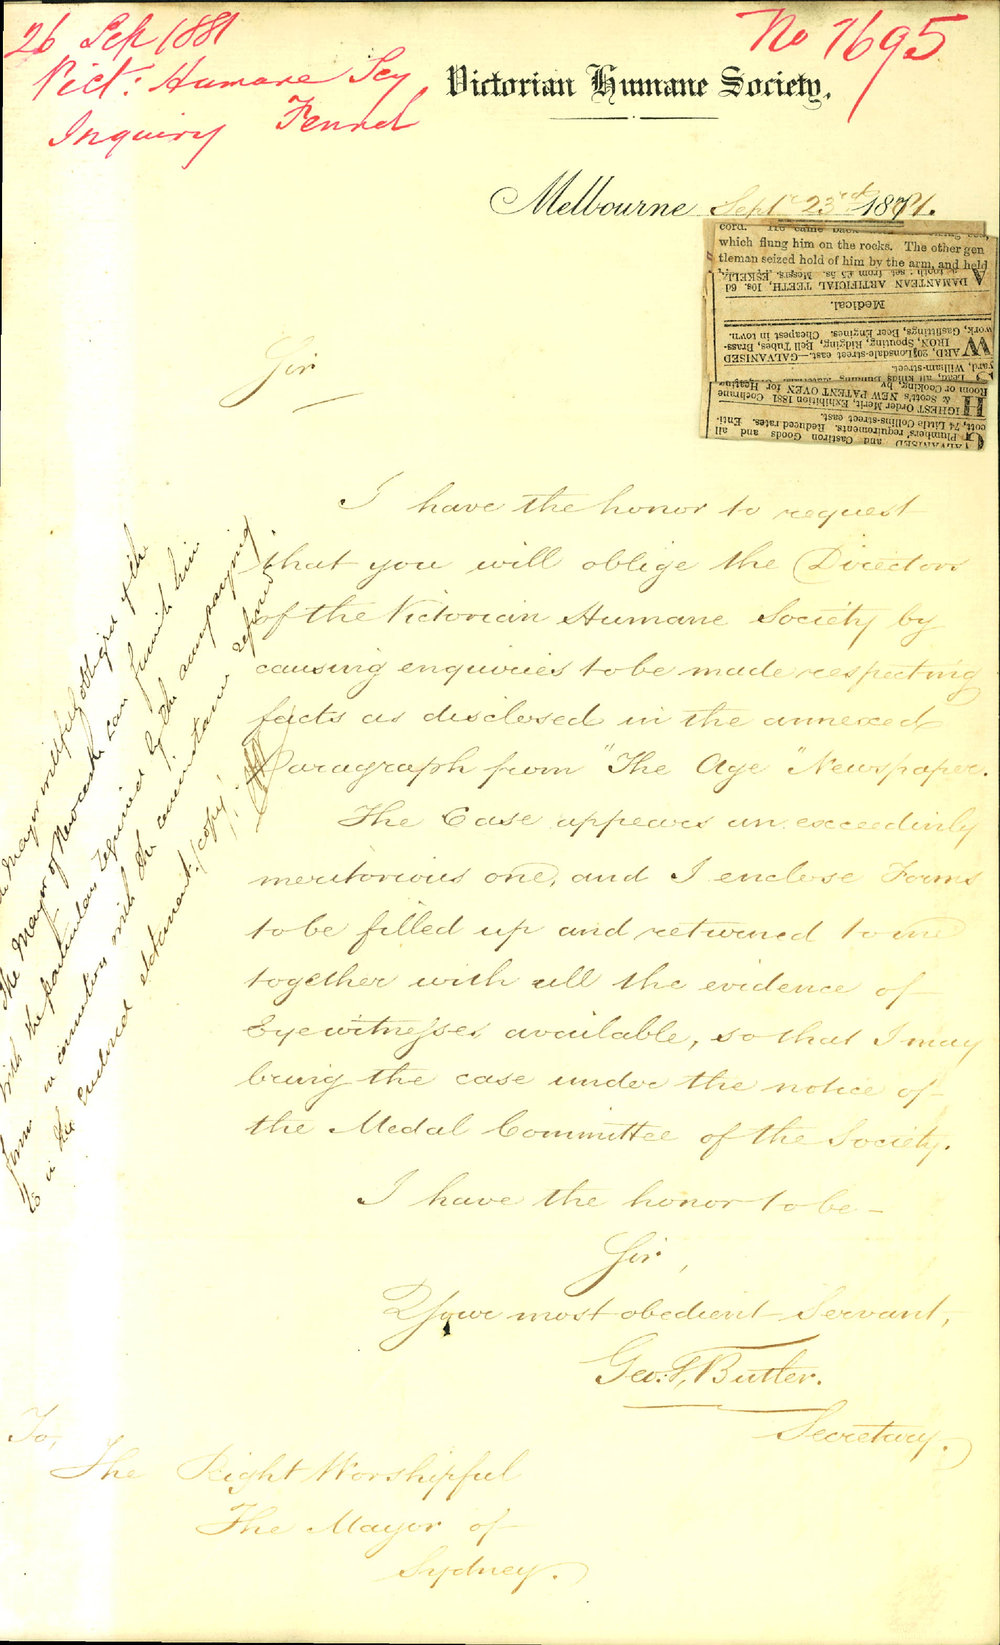 26 Sep 1881
Vict: Humane Scy
Inquiry Fennel
No 7695
Victorian Humane Society.
Melbourne Septr 23rd 1881.
which flung him on the rocks. The other gen
tleman seized hold of him by the arm, and held
ADAMANTEAN ARTIFICIAL TEETH, 10s. 6d
a tooth; set from £5 5s. Messrs. ESKELL,
Medical.
WARD, 20 Lonsdale-street east.—GALVANISED
IRON, Spouting, Ridging, Bell Tubes, Brass-
work, Gasfittings, Beer Engines. Cheapest in town.
yard, William-street.
HIGHEST Order Merit, Exhibition 1881 Cochrane
& Scott's NEW PATENT OVEN for Heating
Room or Cooking, by
GALVANISED and Castiron Goods and all
Plumbers' requirements. Reduced rates. Enti-
cott, 74 Little Collins-street east.
Sir
I have the honor to request
that you will oblige the Directors
of the Victorian Humane Society by
causing enquiries to be made respecting
facts as disclosed in the annexed
Paragraph from "The Age" Newspaper.
The Case appears an exceedinly
meritorious one, and I enclose Forms
to be filled up and returned to me
together with all the evidence of
Eyewitnesses available, so that I may
bring the case under the notice of
the Medal Committee of the Society.
I have the honor to be
Sir,
Your most obedient Servant,
Geo: F, Butler.
Secretary.
To,
The Right Worshipful
The Mayor of
Sydney.
Mayor will feel obliged if the
The Mayor of Newcastle can furnish him
with the particulars required by the accompanying
forms in connection with the circumstance referred
to in the enclosed statement (copy)